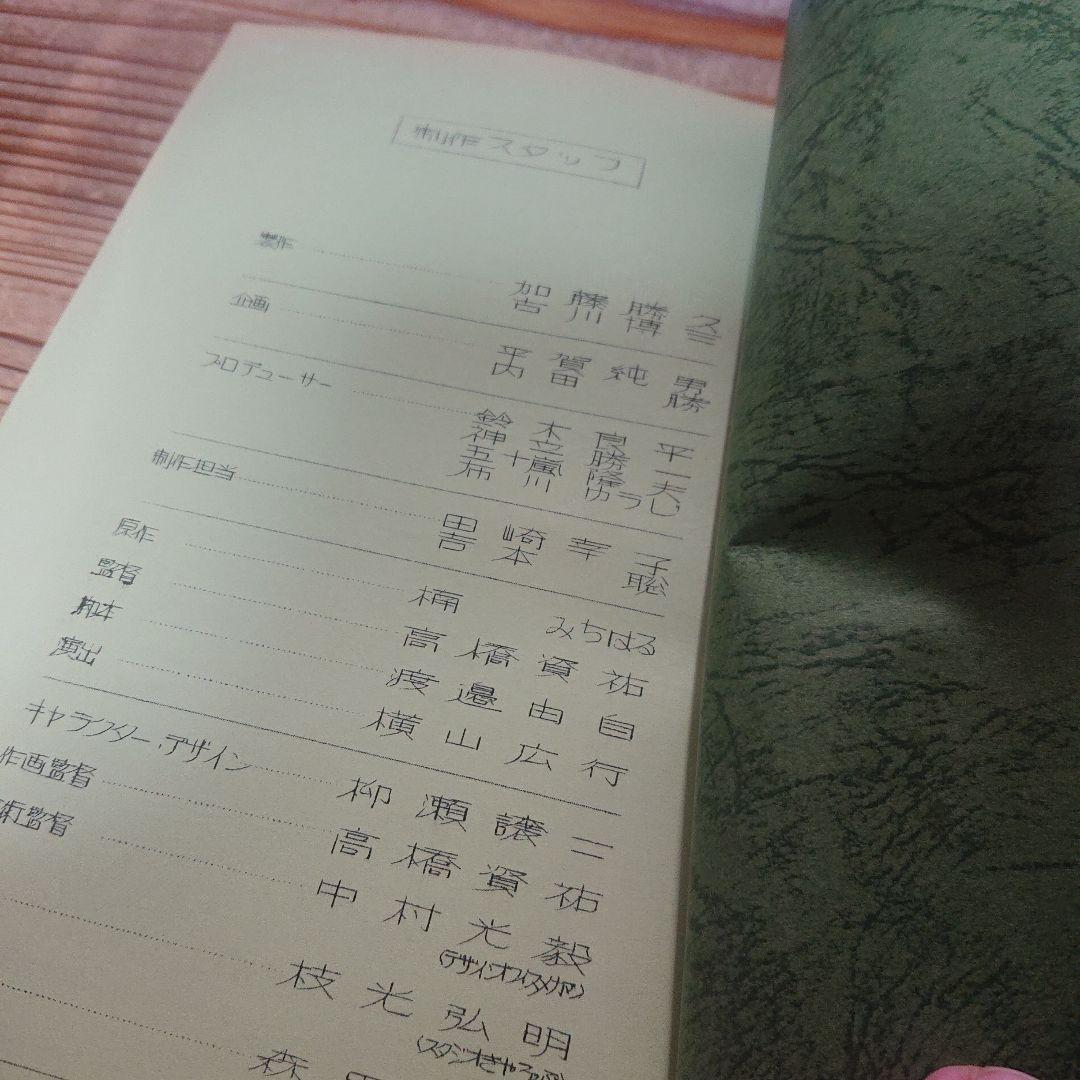 制作スタッフ
製作 加藤勝久
吉川博三
企画 平賀純男
内田勝
プロデューサー 鈴木良平
神立勝一
五十嵐隆夫
布川ゆうじ
制作担当 田崎幸子
吉本聡
原作 楠みちはる
監督 高橋資祐
脚本 渡邉由自
演出 横山広行
キャラクター・デザイン 柳瀬譲二
作画監督 高橋資祐
術監督 中村光毅
(デザインオフィスメカマン)
枝光弘明
森